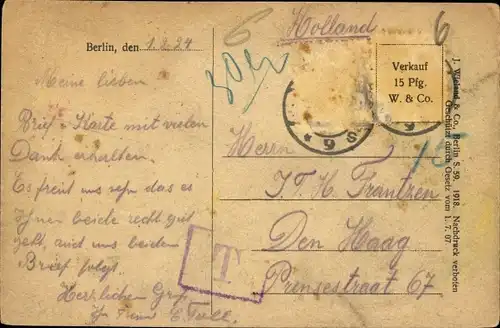 Holland
6
6
Berlin, den 1.2.24
Verkauf
15 Pfg.
W. & Co.
Meine lieben
Brief u Karte mit vielen
Dank erhalten.
Es freut uns sehr das es
Ihnen beide recht gut
geht, und uns beiden
Brief folgt.
Herzlichen Gruß
T
Herrn
J. T. H. Frantzen
Den Haag
Prinsestraat 67
J. Wieland & Co., Berlin S. 59, 1918. Nachdruck verboten
Geschützt durch Gesetz vom 1. 7. 07